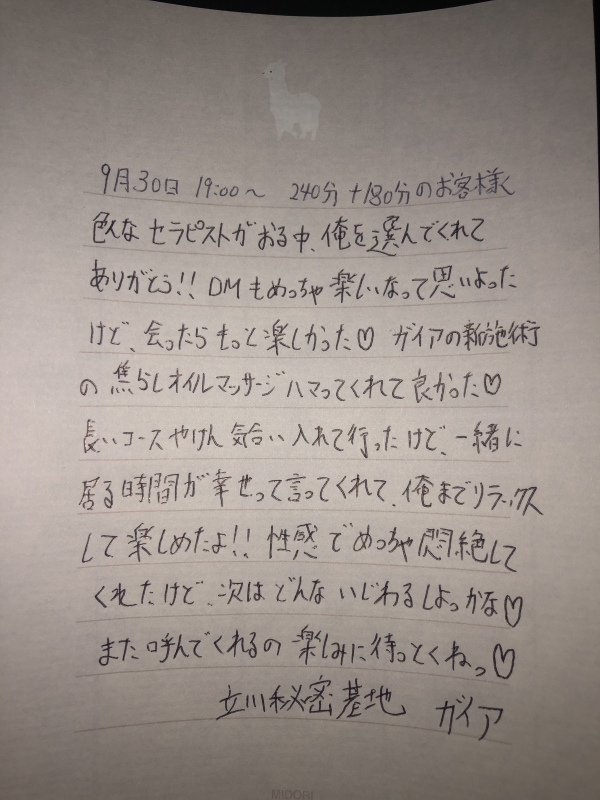 9月30日 19:00～ 240分+180分のお客様へ
色んな セラピストがおる中、俺を選んでくれて
ありがとう!! DMもめっちゃ楽しいなって思いよった
けど、会ったらもっと楽しかった♡ ガイアの新施術
の 焦らしオイルマッサージハマってくれて良かった♡
長いコースやけん 気合い入れて行ったけど、一緒に
居る時間が幸せって言ってくれて、俺までリラックス
して楽しめたよ!! 性感でめっちゃ悶絶して
くれたけど、次はどんないじわるしよっかな♡
また呼んでくれるの楽しみに待っとくねっ♡
立川秘密基地 ガイア
MIDORI